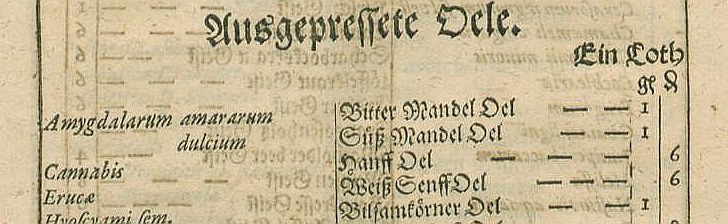 Ausgepressete Oele.
Ein Loth
gl ₰
Amygdalarum amararum Bitter Mandel Oel — — 1
dulcium Süß Mandel Oel — — 1
Cannabis Hanff Oel — — — 6
Erucæ Weiß Senff Oel — — — 6
Hyoscyami sem. Bilsamkörner Oel — — 1